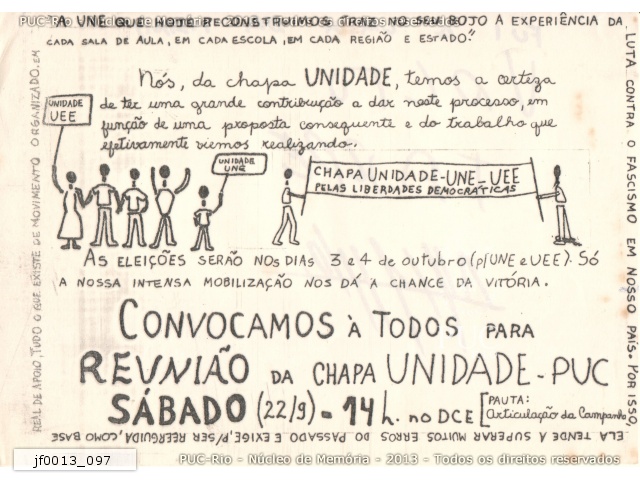 "A UNE QUE HOJE RECONSTRUIMOS TRAZ NO SEU BOJO A EXPERIÊNCIA DA
LUTA CONTRA O FASCISMO EM NOSSO PAÍS. POR ISSO,
ELA TENDE A SUPERAR MUITOS ERROS DO PASSADO E EXIGE, P/SER REERGUIDA, COMO BASE
REAL DE APOIO, TUDO O QUE EXISTE DE MOVIMENTO ORGANIZADO, EM
CADA SALA DE AULA, EM CADA ESCOLA, EM CADA REGIÃO E ESTADO."
Nós, da chapa UNIDADE, temos a certeza
de ter uma grande contribuição a dar neste processo, em
função de uma proposta consequente e do trabalho que
efetivamente viemos realizando.
UNIDADE
UEE
UNIDADE
UNE
CHAPA UNIDADE-UNE-UEE
PELAS LIBERDADES DEMOCRÁTICAS
AS ELEIÇÕES SERÃO NOS DIAS 3 e 4 de outubro (p/UNE e UEE). Só
A NOSSA INTENSA MOBILIZAÇÃO NOS DÁ A CHANCE DA VITÓRIA.
CONVOCAMOS À TODOS PARA
REUNIÃO DA CHAPA UNIDADE-PUC
SÁBADO (22/9) = 14 h. no DCE [PAUTA:
Articulação da Campanha
jf0013_097
PUC-Rio - Núcleo de Memória - 2013 - Todos os direitos reservados